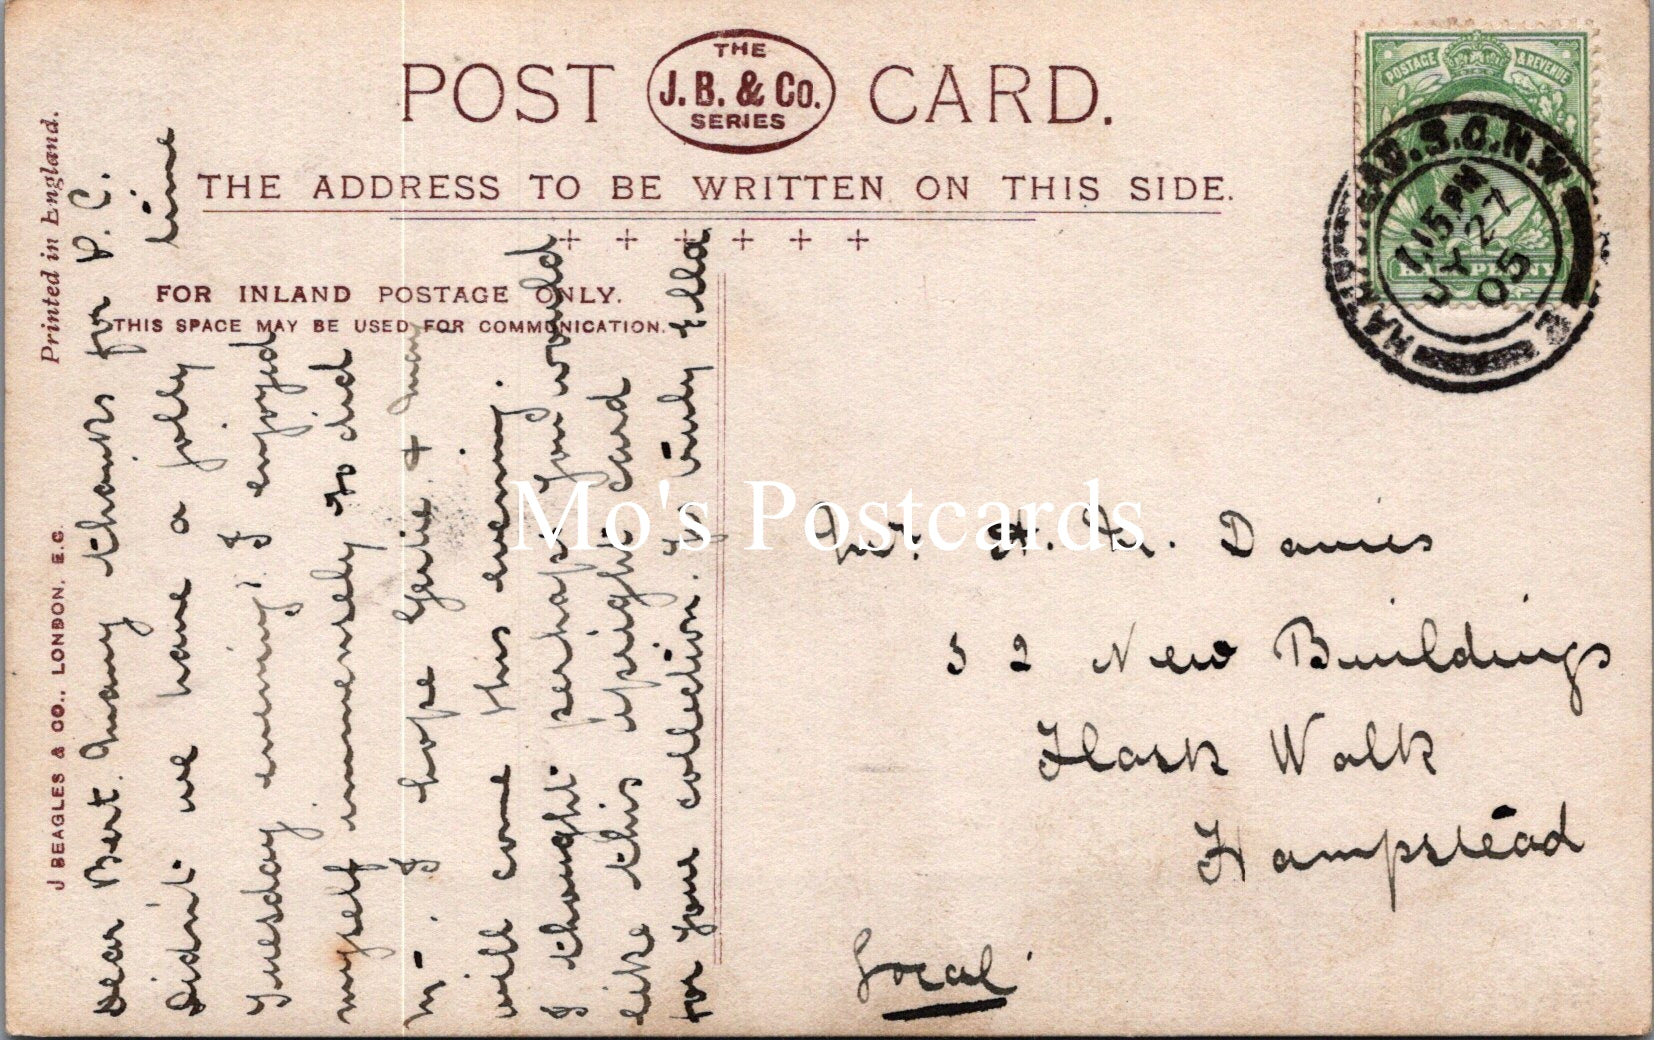 POST CARD.
THE
J. B. & Co.
SERIES
THE ADDRESS TO BE WRITTEN ON THIS SIDE.
FOR INLAND POSTAGE ONLY.
THIS SPACE MAY BE USED FOR COMMUNICATION.
Printed in England.
J BEAGLES & CO., LONDON, E.C.
POSTAGE & REVENUE
HALFPENNY
HAMPSTEAD. S.O. N.W
7.15 PM
JY 27
05
Dear Bert. Many thanks for P.C.
Didn't we have a jolly time
Tuesday evening! I enjoyed
myself immensely so did
M. I hope Gertie + may
will come this evening.
I thought perhaps you would
like this upright card
for your collection. Yr truly Ella
Mr. H. Davies
52 New Buildings
Flask Walk
Hampstead
Local
Mo's Postcards